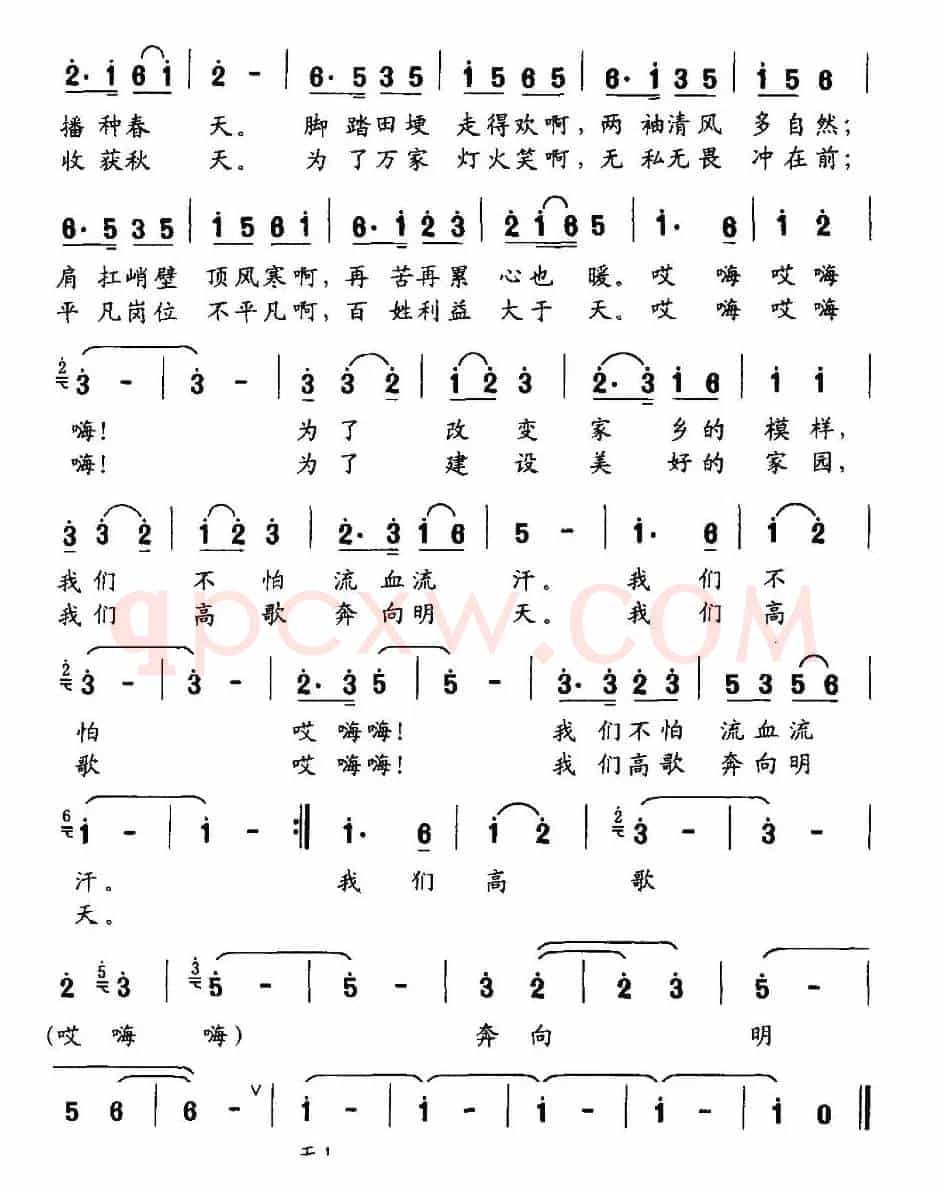 2· 1 6 1 | 2 - | 6· 5 3 5 | 1 5 6 5 | 6· 1 3 5 | 1 5 6 |
播种春 天。 脚踏田埂 走得欢啊, 两袖清风 多自然;
收获秋 天。 为了万家 灯火笑啊, 无私无畏 冲在前;
6· 5 3 5 | 1 5 6 1 | 6· 1 2 3 | 2 1 6 5 | 1· 6 | 1 2 |
肩扛峭壁 顶风寒啊, 再苦再累 心也暖。 哎嗨哎嗨
平凡岗位 不平凡啊, 百姓利益 大于天。 哎嗨哎嗨
2 3 - | 3 - | 3 3 2 | 1 2 3 | 2· 3 1 6 | 1 1 |
嗨! 为了 改变家 乡的模样,
嗨! 为了 建设美 好的家园,
3 3 2 | 1 2 3 | 2· 3 1 6 | 5 - | 1· 6 | 1 2 |
我们 不怕 流血流 汗。 我们不
我们 高歌 奔向明 天。 我们高
qpcxw.COM
2 3 - | 3 - | 2· 3 5 | 5 - | 3· 3 2 3 | 5 3 5 6 |
怕 哎嗨嗨! 我们不怕 流血流
歌 哎嗨嗨! 我们高歌 奔向明
6 1 - | 1 - :| 1· 6 | 1 2 | 2 3 - | 3 - |
汗。 我们高 歌
天。
2 5 3 | 3 5 - | 5 - | 3 2 | 2 3 | 5 - |
(哎嗨 嗨) 奔向 明
5 6 | 6 - ∨ | 1 - | 1 - | 1 - | 1 - | 1 0 ‖